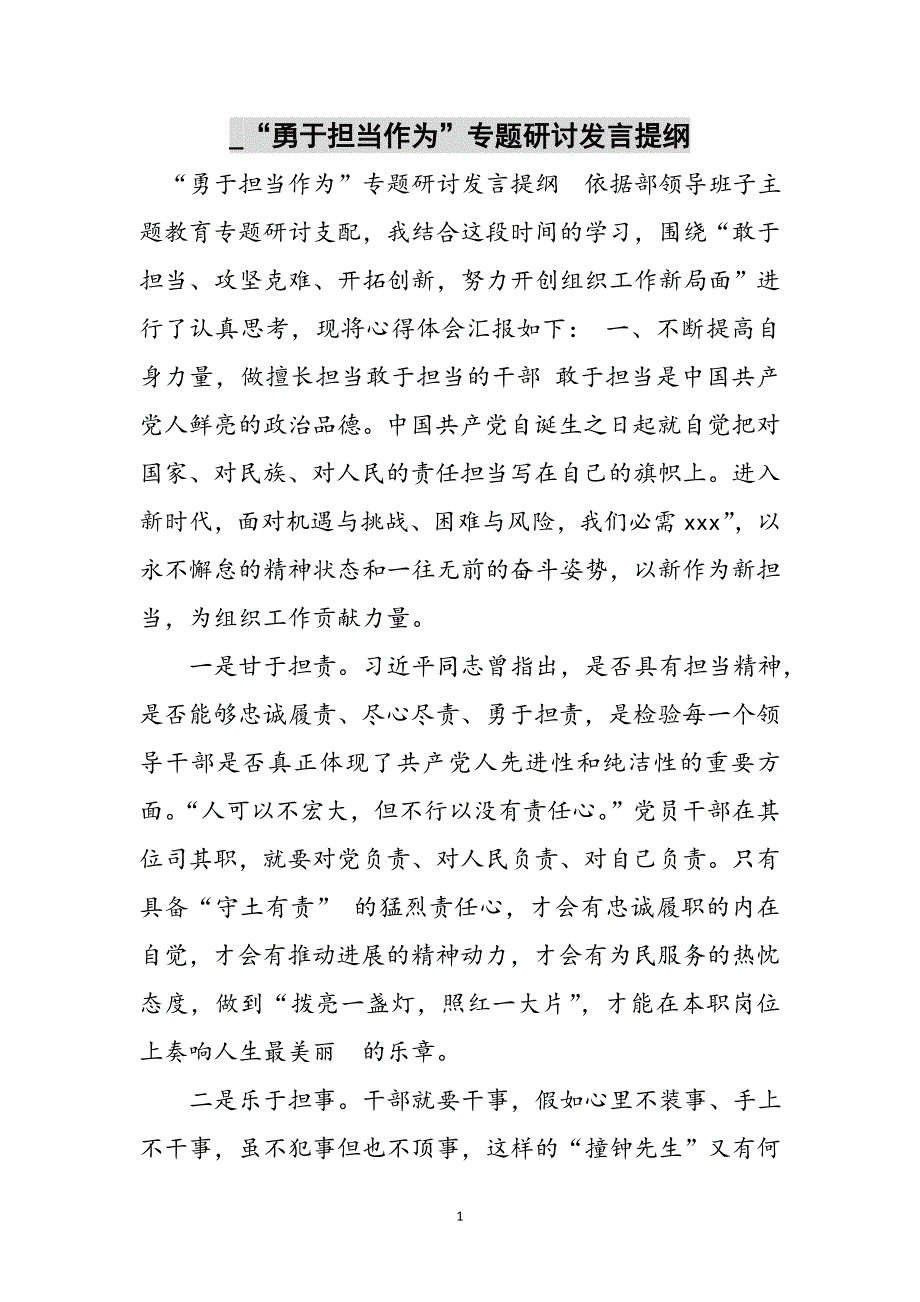 _“勇于担当作为”专题研讨发言提纲
“勇于担当作为”专题研讨发言提纲　依据部领导班子主
题教育专题研讨支配，我结合这段时间的学习，围绕“敢于
担当、攻坚克难、开拓创新，努力开创组织工作新局面”进
行了认真思考，现将心得体会汇报如下： 一、不断提高自
身力量，做擅长担当敢于担当的干部 敢于担当是中国共产
党人鲜亮的政治品德。中国共产党自诞生之日起就自觉把对
国家、对民族、对人民的责任担当写在自己的旗帜上。进入
新时代，面对机遇与挑战、困难与风险，我们必需 xxx”，以
永不懈怠的精神状态和一往无前的奋斗姿势，以新作为新担
当，为组织工作贡献力量。
一是甘于担责。习近平同志曾指出，是否具有担当精神，
是否能够忠诚履责、尽心尽责、勇于担责，是检验每一个领
导干部是否真正体现了共产党人先进性和纯洁性的重要方
面。“人可以不宏大，但不行以没有责任心。”党员干部在其
位司其职，就要对党负责、对人民负责、对自己负责。只有
具备“守土有责” 的猛烈责任心，才会有忠诚履职的内在
自觉，才会有推动进展的精神动力，才会有为民服务的热忱
态度，做到“拨亮一盏灯，照红一大片”，才能在本职岗位
上奏响人生最美丽　的乐章。
二是乐于担事。干部就要干事，假如心里不装事、手上
不干事，虽不犯事但也不顶事，这样的“撞钟先生”又有何
1